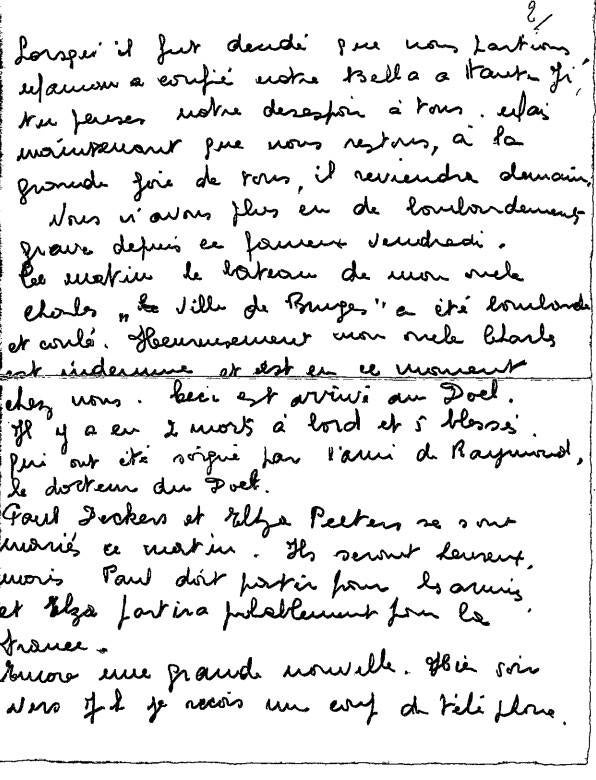 2/
Lorsqu'il fut decidé que nous partions
Maman a confié notre Bella a
tu penses notre desespoir à tous. Mais
maintenant que nous restons, à la
grande joie de tous, il reviendra demain.
Nous n'avons plus eu de bombardements
grave depuis ce fameux vendredi.
Ce matin le bateau de mon oncle
Charles „le Ville de Bruges" a été bombardé
et coulé. Heureusement mon oncle Charles
est indemne et est en ce moment
chez nous. Ceci est arrivé au Doel.
Il y a eu 2 morts à bord et 5 blessés
qui ont été soigné par l'ami de Raymond,
le docteur du Doel.
Paul Deckers et Elza Peeters se sont
mariés ce matin. Ils seront heureux,
mais Paul doit partir pour
et Elza partira probablement pour la
France.
Encore une grande nouvelle. Hier soir
vers 7 h je reçois un coup de téléphone.